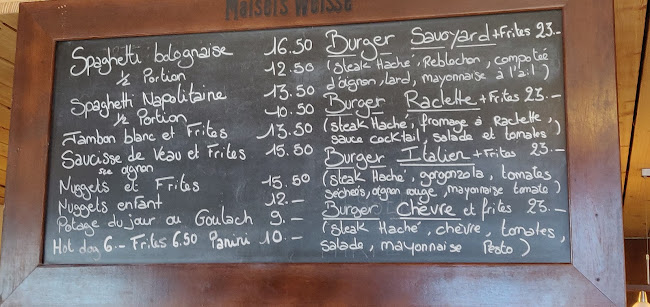 Maisels Weisse
Spaghetti bolognaise 16.50
½ Portion 12.50
Spaghetti Napolitaine 13.50
½ Portion 10.50
Jambon blanc et Frites 13.50
Saucisse de Veau et Frites 15.50
sce oignon
Nuggets et Frites 15.50
Nuggets enfant 12.-
Potage du jour ou Goulach 9.-
Hot dog 6.- Frites 6.50 Panini 10.-
Burger Savoyard + Frites 23.-
(steak Haché, Reblochon, compotée
d'oignon, lard, mayonnaise à l'ail)
Burger Raclette + Frites 23.-
(steak Haché, fromage à Raclette,
sauce cocktail, salade et tomates)
Burger Italien + Frites 23.-
(steak Haché, gorgonzola, tomates
sechées, oignon rouge, mayonnaise tomate)
Burger Chèvre et frites 23.-
(steak Haché, chèvre, tomates,
salade, mayonnaise Pesto)